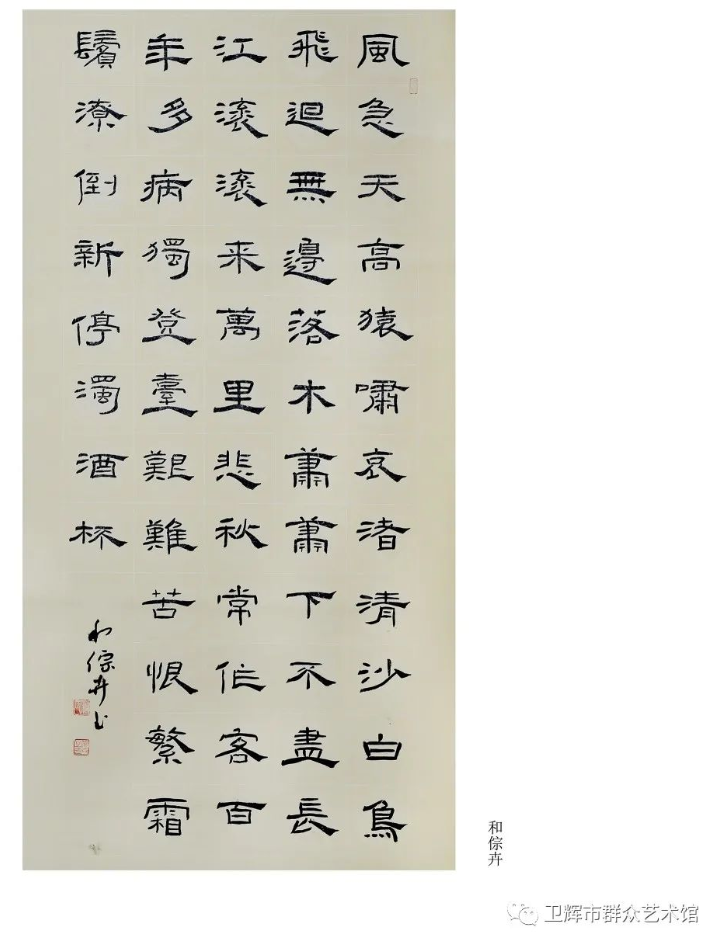 風急天高猿嘯哀渚清沙白鳥
飛迴無邊落木蕭蕭下不盡長
江滚滚来萬里悲秋常作客百
年多病獨登臺艱難苦恨繁霜
鬢潦倒新停濁酒杯
和倧卉书
和倧卉
卫辉市群众艺术馆